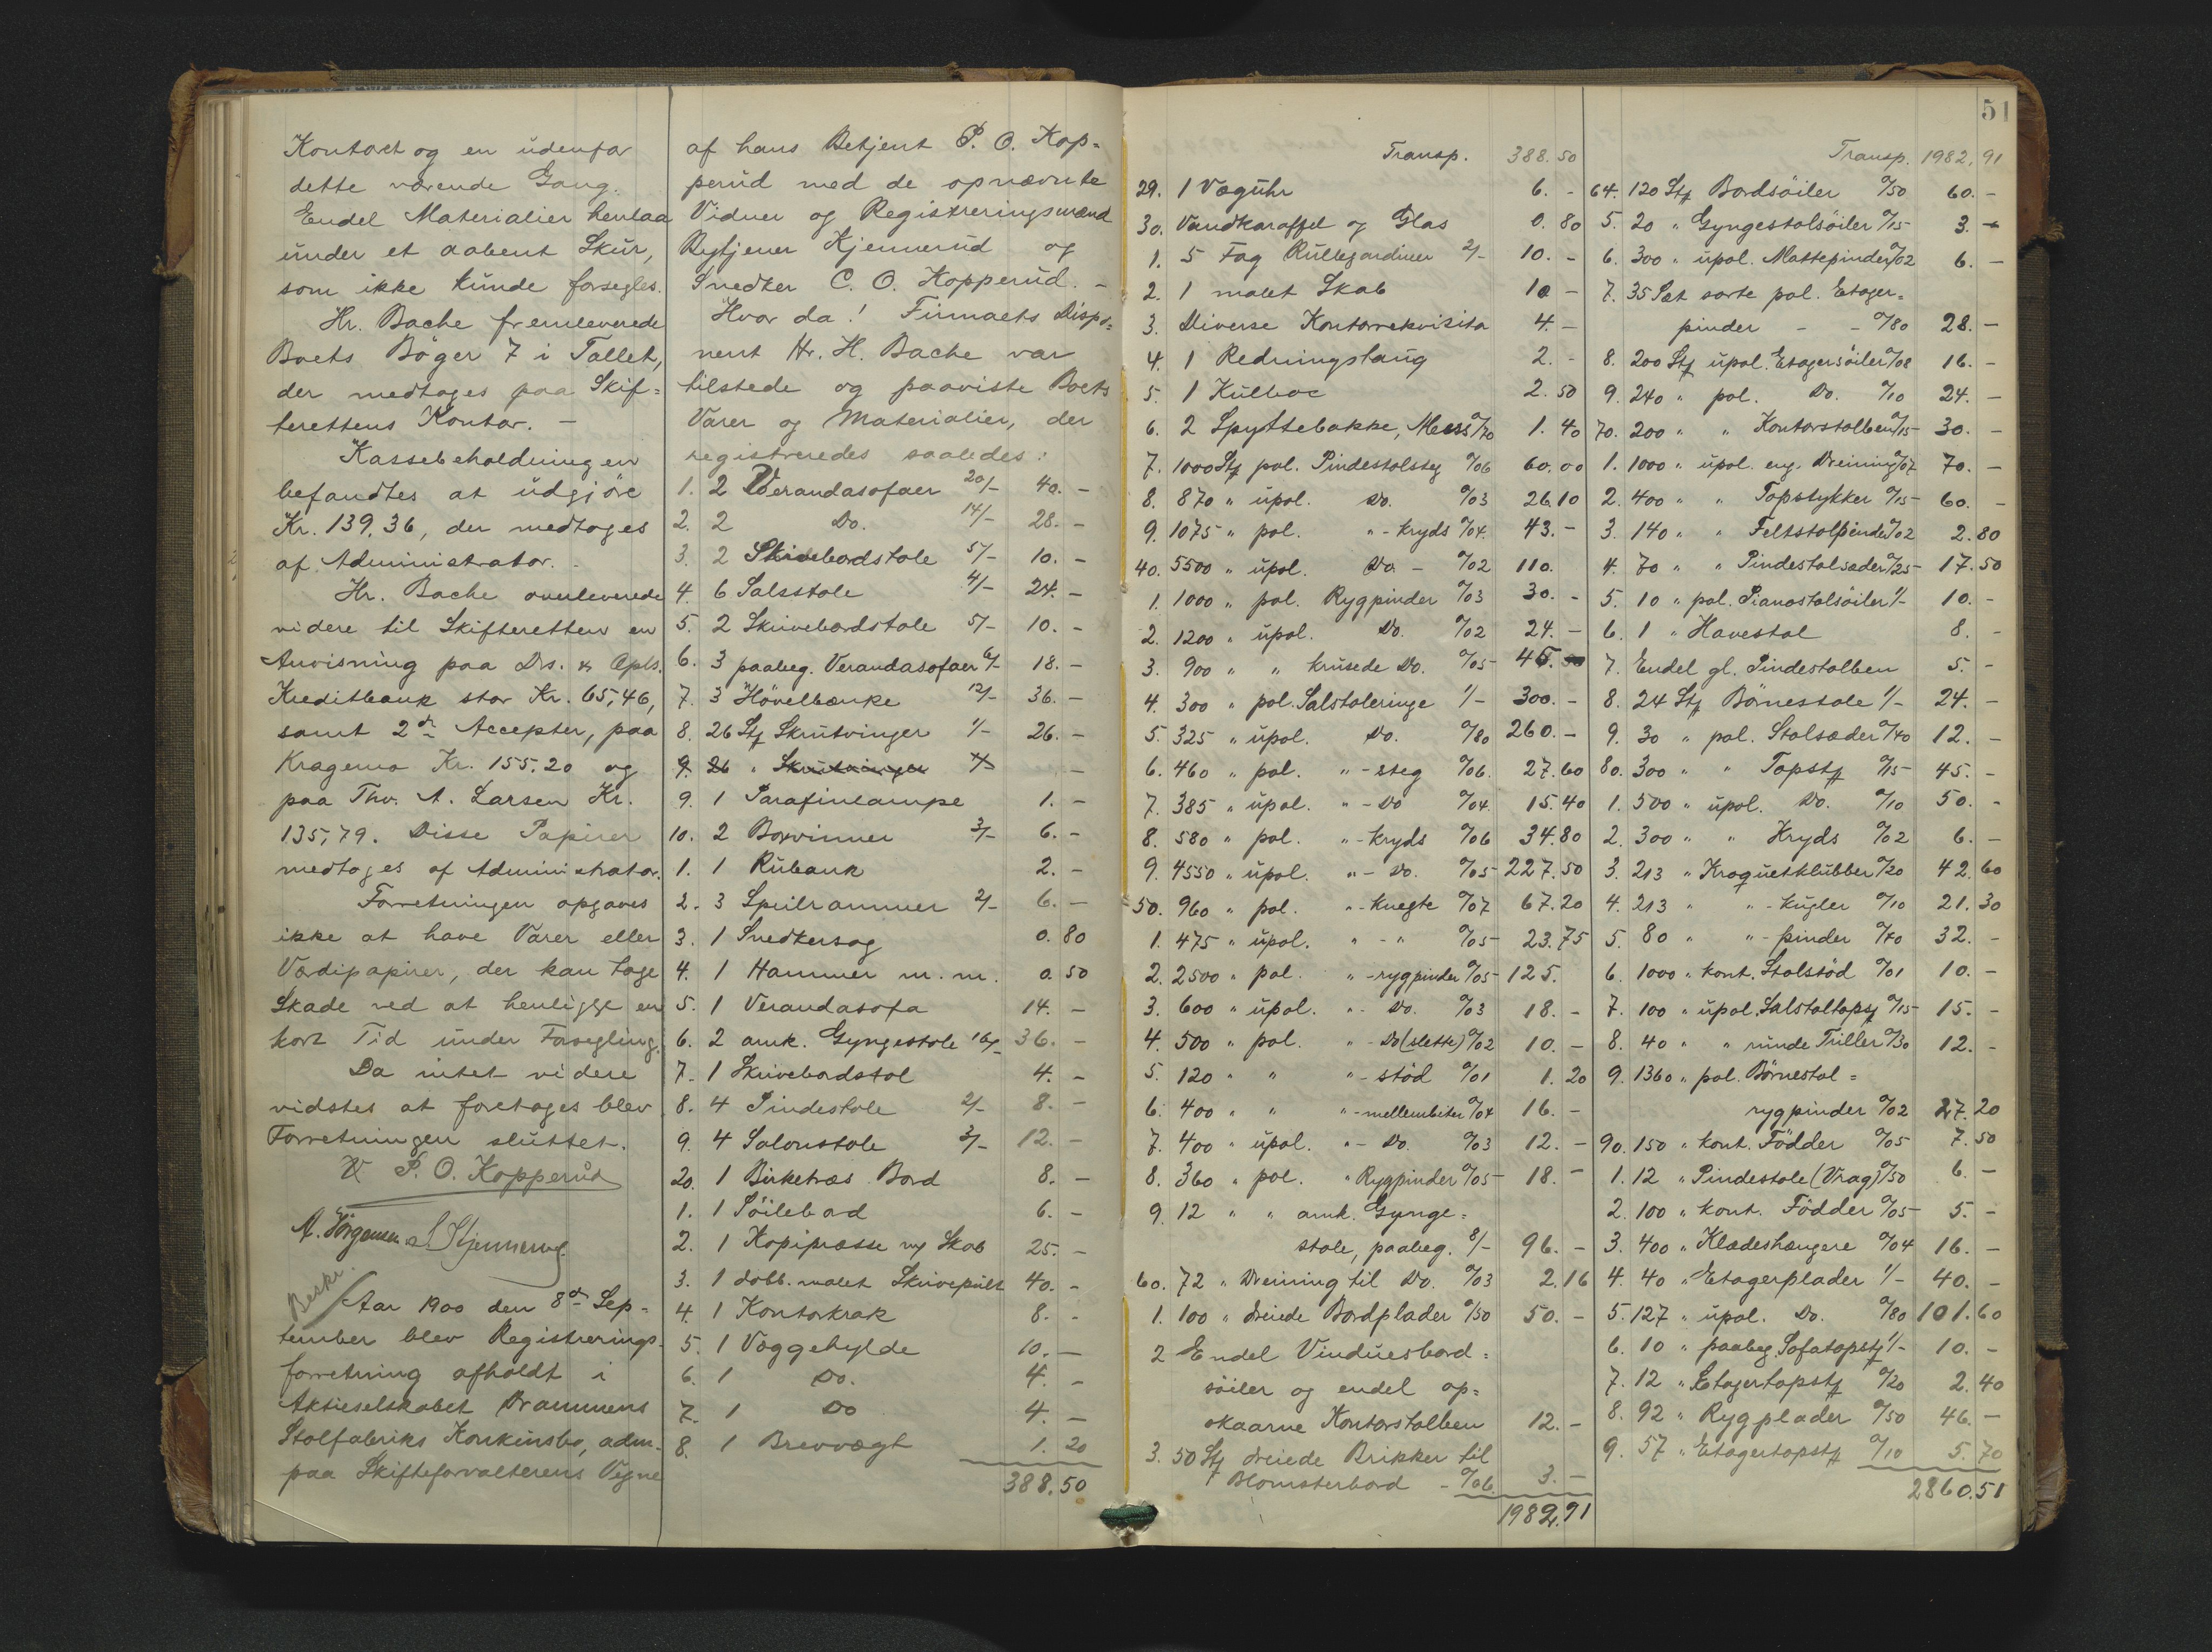 Kontoret og en udenfor
dette værende Gang.
Endel Materialier henlaa
under et aabent Skur,
som ikke kunde forsegles.
Hr. Bache fremleverede
Boets Bøger 7 i Tallet,
der medtoges paa Skif=
terettens Kontor. –
Kassebeholdningen
befandtes at udgjöre
Kr. 139.36, der medtoges
af Administrator. –
Hr. Bache overleverede
videre til Skifteretten en
Anvisning paa Drs. & Opls.
Kreditbank stor Kr. 65,46,
samt 2de Accepter, paa
Kragemo Kr. 155.20 og
paa Thv. A. Larsen Kr.
135,79. Disse Papirer
medtoges af Administrator.
Forretningen opgaves
ikke at have Varer eller
Værdipapirer, der kan tage
Skade ved at henligge en
kort Tid under Forsegling.
Da intet videre
vidstes at foretages blev
Forretningen sluttet.
P. O. Kopperud
A. Jörgensen. Kjennerud.
Beskr.
Aar 1900 den 8de Sep=
tember blev Registrerings-
forretning afholdt i
Aktieselskabet Drammens
Stolfabriks Konkursbo, adm.
paa Skifteforvalterens Vegne
af hans Betjent P. O. Kop=
perud med de opnævnte
Vidner og Registreringsmænd
Bytjener Kjennerud og
Snedker C. O. Kopperud. –
Hvor da! Firmaets Dispo=
nent Hr. H. Bache var
tilstede og paaviste Boets
Varer og Materialier, der
registreredes saaledes:
1. 2 Verandasofaer 20/- 40. -
2. 2 Do. 14/- 28. -
3. 2 Skrivebordstole 5/- 10. -
4. 6 Salsstole 4/- 24. -
5. 2 Skrivebordstole 5/- 10. -
6. 3 paabeg. Verandasofaer 6/- 18. -
7. 3 Hövelbænke 12/- 36. -
8. 26 Stk Skrutvinger 1/- 26. -
9. 26 " Skrutvinger
9. 1 Parafinlampe 1. -
10. 2 Borvinner 3/- 6. -
1. 1 Rubank 2. -
2. 3 Speilrammer 2/- 6. -
3. 1 Snedkersag 0.80
4. 1 Hammer m. m. 0.50
5. 1 Verandasofa 14. -
6. 2 amk. Gyngestole 18/- 36. -
7. 1 Skrivebordstol 4. -
8. 4 Pindestole 2/- 8. -
9. 4 Salonstole 3/- 12. -
20. 1 Birketræs Bord 8. -
1. 1 Söilebord 6. -
2. 1 Kopipresse m/ Skab 25. -
3. 1 dobb. malet Skrivepult 40. -
4. 1 Kontorkrak 8. -
5. 1 Væggehylde 10. -
6. 1 Do. 4. -
7. 1 Do 4. -
8. 1 Brevvægt 1.20
388.50
Transp. 388.50
29. 1 Væguhr 6. -
30. Vandkaraffel og Glas 0.80
1. 5 Fag Rullegardiner 2/- 10. -
2. 1 malet Skab 10 -
3. Diverse Kontorrekvisita 4. -
4. 1 Redningstaug 2. -
5. 1 Kulbox 2.50
6. 2 Spyttebakke, Mess %70 1.40
7. 1000 Stk pol. Pindestolsteg %06 60.00
8. 870 " upol. Do. %03 26.10
9. 1075 " pol. " - kryds %04. 43. -
40. 5500 " upol. Do - %02 110.
1. 1000 " pol. Rygpinder %03 30. -
2. 1200 " upol. Do. %02 24. -
3. 900 " " krusede Do. %05 45.
4. 300 " pol. Salstoleringe 1/- 300. -
5. 325 " upol. Do. %80 260. -
6. 460 " pol. " - steg %06. 27.60
7. 385 " upol. " - Do %04. 15.40
8. 580 " pol. " - kryds %06 34.80
9. 4550 " upol. " - Do. %05 227.50
50. 960 " pol. " - knegte %07 67.20
1. 475 " upol. " - " %05 23.75
2. 2500 " pol. " - rygpinder %05 125.
3. 600 " upol. " - Do. %03 18. -
4. 500 " pol. " - Do (slette) %02 10. -
5. 120 " " " - stöd %01 1.20
6. 400 " " " - mellembiter %04 16. -
7. 400 " upol. " - Do. %03 12. -
8. 360 " pol. " Rygpinder %05 18. -
9. 12 " " amk. Gynge=
stole, paabeg. 8/- 96. -
60. 72 " Dreining til Do. %03 2.16
1. 100 " dreiede Bordplader %50 50. -
2 Endel Vinduesbord=
söiler og endel op=
skaarne Kontorstolben 12. -
3. 50 Stk dreiede Brikker til
Blomsterbord - %06 3. -
1982.91
51
Transp. 1982,91
64. 120 Stk Bordsöiler %50 60. -
5. 20 " Gyngestolsöiler %15 3. -
6. 300 " upol. Mattepinder %02 6. -
7. 35 Sæt sorte pol. Etager=
pinder - - %80 28. -
8. 200 Stk upol. Etagersöiler %08 16. -
9. 240 " pol. Do. %10 24. -
70. 200 " " Kontorstolben %15 30. -
1. 1000 " upol. eng. Dreining %07 70. -
2. 400 " " Topstykker %15 60. -
3. 140 " " Feltstolpinder %02 2.80
4. 70 " " Pindestolsæder %25 17.50
5. 10 " pol. Pianostolsöiler 1/- 10. -
6. 1 " Havestol 8. -
7. Endel gl. Pindestolben 5. -
8. 24 Stk Börnestole 1/- 24. -
9. 30 " pol. Stolsæder %40 12. -
80. 300 " " Topstk %15 45. -
1. 500 " upol. Do. %10 50. -
2. 300 " " Kryds %02 6. -
3. 213 " Kroquetklubber %20 42.60
4. 213 " " - kugler %10 21.30
5. 80 " " - pinder %40 32. -
6. 1000 " kont. Stolstöd %01 10. -
7. 100 " upol. Salstoltopstk %15 15. -
8. 40 " " runde Triller %30 12. -
9. 1360 " pol. Börnestol=
rygpinder %02 27.20
90. 150 " kont. Födder %05 7.50
1. 12 " Pindestole (Vrag) %50 6. -
2. 100 " kont. Födder %05 5. -
3. 400 " Klædeshængere %04 16. -
4. 40 " Etagerplader 1/- 40. -
5. 127 " upol. Do. %80 101.60
6. 10 " paabeg. Sofatopstk 1/- 10. -
7. 12 " Etagertopstk %20 2.40
8. 92 " Rygplader %50 46. -
9. 57 " Etagertopstk %10 5.70
2860.51